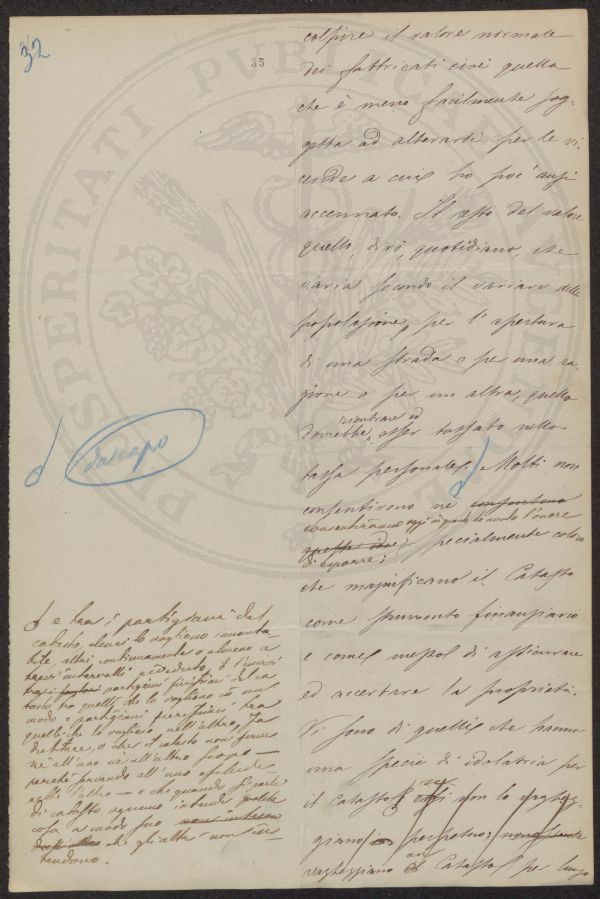 32
35
colpire il valore normale
dei fabbricati cioè quella
che è meno facilmente sog-
getta ad alterarsi per le vi-
cende a cui ho poc'anzi
accennato. Il resto del valore
quello, dirò, quotidiano, che
varia secondo il variare della
popolazione, per l'apertura
di una strada o per una ra-
gione o per un altra, quello
rientrare ed
dovrebbe esser tassato nella
tassa personale. Molti non
consentirono nè consentono
consentiranno oggi in quanto ho avuto l'onore
queste idee, specialmente coloro
di esporre;
che magnificano il Catasto
come strumento finanziario
e come mezzo di assicurare
ed accertare la proprietà.
Vi sono di quelli che hanno
una specie di idolatria per
il catasto, essi non lo vagheg-
giano perpetuo;
vagheggiano il Catasto per lungo
da capo
e tra i partigiani del
catasto, alcuni lo vogliono immuta
bile, altri continuamente o almeno a
brevi intervalli riveduto. E
partigiani del ca
tasto tra quelli che lo vogliono in un
modo e partigiani tra
quelli che lo vogliono nell'altro, fa
dubitare, o che il catasto non serva
nè all'uno nè all'altro scopo —
perchè servendo all'uno esclude-
rebbe l'altro — o che quando si parla
di catasto ognuno intende qualche
cosa a modo suo
che gli altri non in-
tendono.
PROSPERITATI PUBLICAE